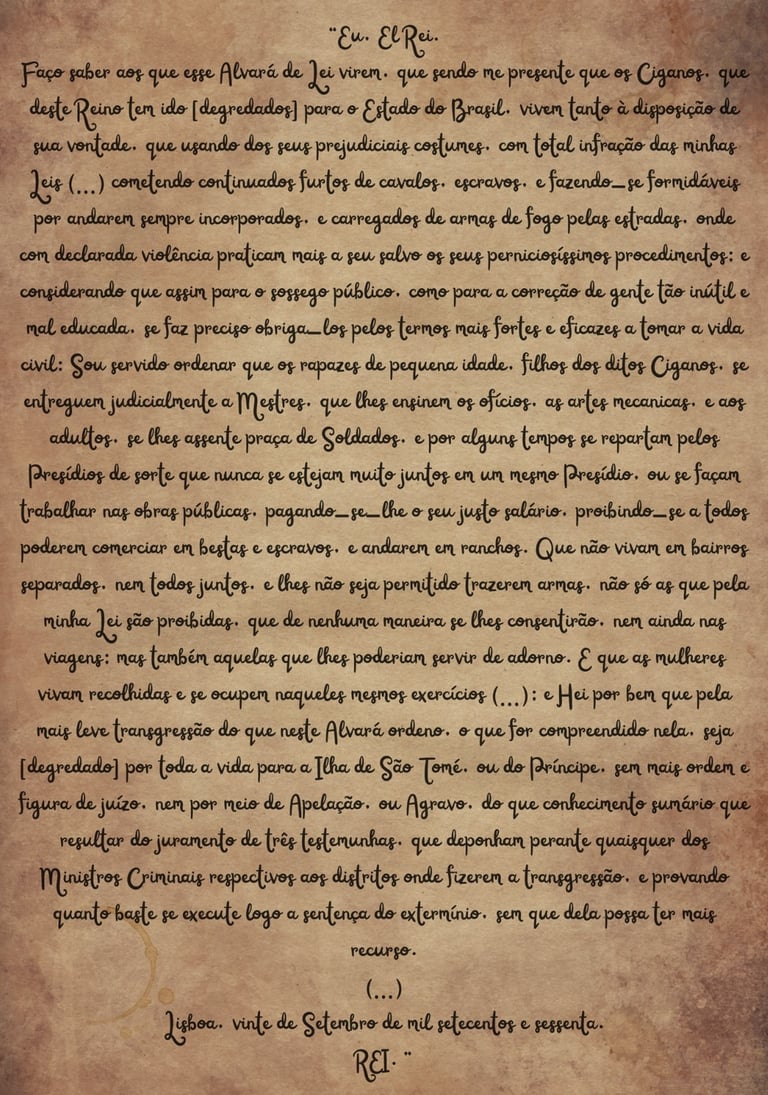 "Eu. El Rei.
Faço saber aos que esse Alvará de Lei virem. que sendo me presente que os Ciganos. que
deste Reino tem ido [degredados] para o Estado do Brasil. vivem tanto à disposição de
sua vontade. que usando dos seus prejudiciais costumes. com total infração das minhas
Leis (...) cometendo continuados furtos de cavalos. escravos. e fazendo_se formidáveis
por andarem sempre incorporados. e carregados de armas de fogo pelas estradas. onde
com declarada violência praticam mais a seu salvo os seus perniciosíssimos procedimentos: e
considerando que assim para o sossego público. como para a correção de gente tão inútil e
mal educada. se faz preciso obriga_los pelos termos mais fortes e eficazes a tomar a vida
civil: Sou servido ordenar que os rapazes de pequena idade. filhos dos ditos Ciganos. se
entreguem judicialmente a Mestres. que lhes ensinem os ofícios. as artes mecanicas. e aos
adultos. se lhes assente praça de Soldados. e por alguns tempos se repartam pelos
Presídios de sorte que nunca se estejam muito juntos em um mesmo Presídio. ou se façam
trabalhar nas obras públicas. pagando_se_lhe o seu justo salário. proibindo_se a todos
poderem comerciar em bestas e escravos. e andarem em ranchos. Que não vivam em bairros
separados. nem todos juntos. e lhes não seja permitido trazerem armas. não só as que pela
minha Lei são proibidas. que de nenhuma maneira se lhes consentirão. nem ainda nas
viagens: mas também aquelas que lhes poderiam servir de adorno. E que as mulheres
vivam recolhidas e se ocupem naqueles mesmos exercícios (...): e Hei por bem que pela
mais leve transgressão do que neste Alvará ordeno. o que for compreendido nela. seja
[degredado] por toda a vida para a Ilha de São Tomé. ou do Príncipe. sem mais ordem e
figura de juízo. nem por meio de Apelação. ou Agravo. do que conhecimento sumário que
resultar do juramento de três testemunhas. que deponham perante quaisquer dos
Ministros Criminais respectivos aos distritos onde fizerem a transgressão. e provando
quanto baste se execute logo a sentença do extermínio. sem que dela possa ter mais
recurso.
(...)
Lisboa. vinte de Setembro de mil setecentos e sessenta.
REI. "